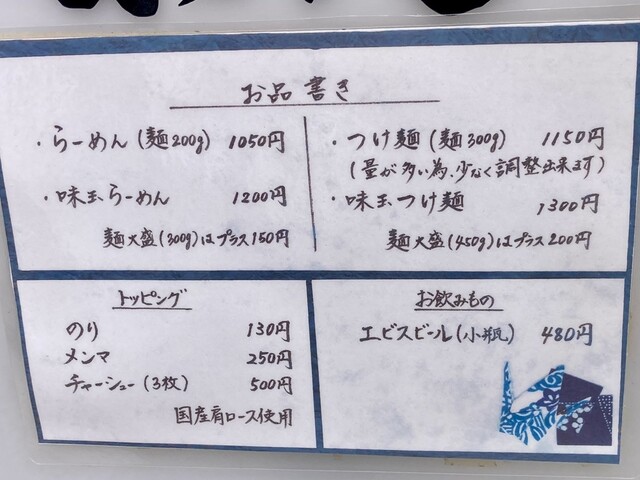 お品書き
・らーめん(麺200g) 1050円
・味玉らーめん 1200円
麺大盛(300g)はプラス150円
・つけ麺(麺300g) 1150円
(量が多い為、少なく調整出来ます)
・味玉つけ麺 1300円
麺大盛(450g)はプラス200円
トッピング
のり 130円
メンマ 250円
チャーシュー(3枚) 500円
国産肩ロース使用
お飲みもの
エビスビール(小瓶) 480円